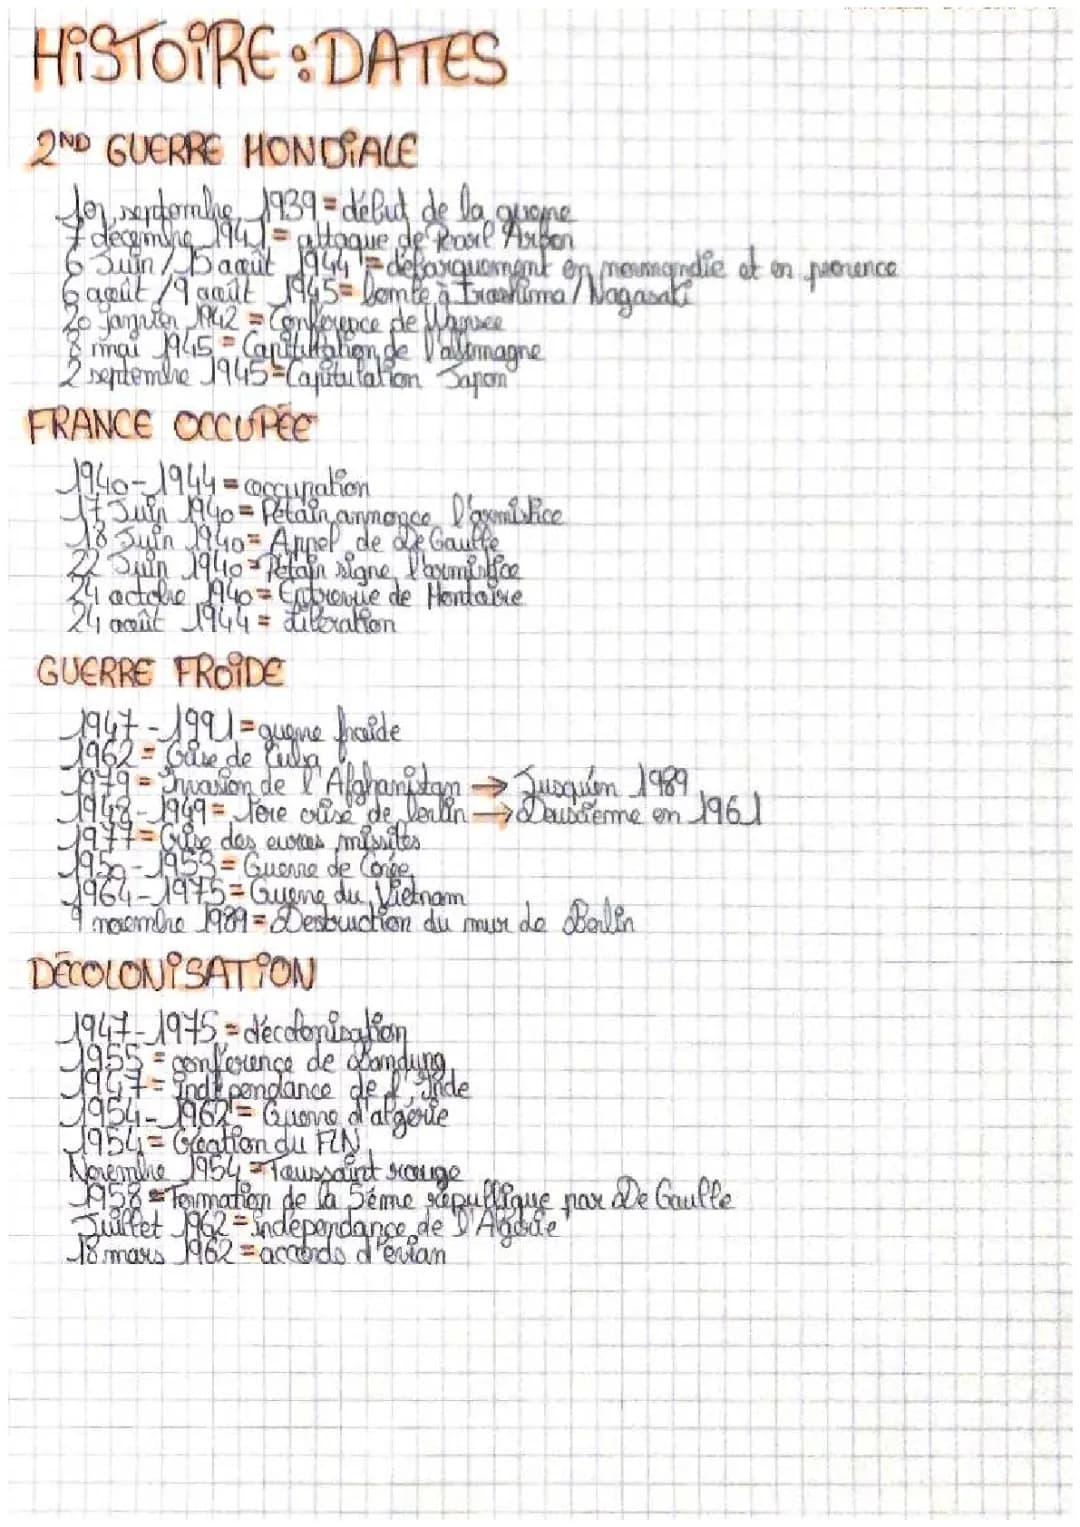 HISTOIRE : DATES
2ND GUERRE MONDIALE
1er septembre 1939 = début de la guerre
7 décembre 1941 = attaque de Pearl Arbor
6 Juin / 15 août 1944 = débarquement en normandie et en provence
6 août / 9 août 1945 = bombe à Iroshima / Nagasaki
20 janvier 1942 = Conférence de Wansee
8 mai 1945 = Capitulation de l'allemagne
2 septembre 1945 = Capitulation Japon
FRANCE OCCUPÉE
1940 - 1944 = occupation
17 Juin 1940 = Pétain annonce l'armistice
18 Juin 1940 = Appel de De Gaulle
22 Juin 1940 = Pétain signe l'armistice
24 octobre 1940 = Entrevue de Montoire
24 août 1944 = Libération
GUERRE FROIDE
1947 - 1991 = guerre froide
1962 = Crise de Cuba
1979 = Invasion de l'Afghanistan → Jusqu'en 1989
1948 - 1949 = 1ère crise de berlin → Deuxième en 1961
1977 = Crise des euros missiles
1950 - 1953 = Guerre de Corée
1964 - 1975 = Guerre du Vietnam
9 novembre 1989 = Destruction du mur de Berlin
DÉCOLONISATION
1947 - 1975 = décolonisation
1955 = conférence de Bandung
1947 = indépendance de l'Inde
1954 - 1962 = Guerre d'algérie
1954 = Création du FLN
Novembre 1954 = Toussaint rouge
1958 = Formation de la 5ème république par De Gaulle
Juillet 1962 = indépendance de l'Algérie
18 mars 1962 = accords d'évian